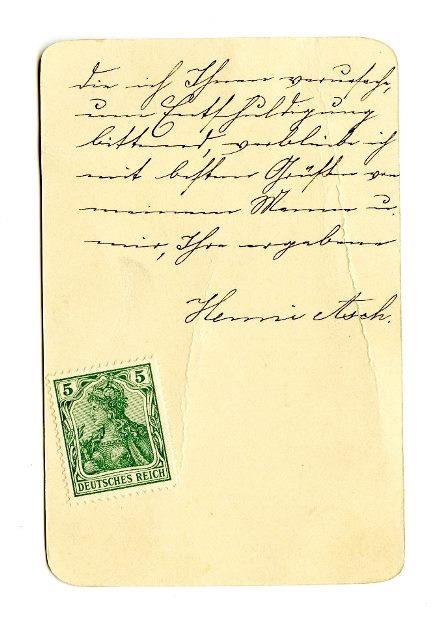 die ich Ihnen verursache,
um Entschuldigung
bittend, verbleibe ich
mit besten Grüßen von
meinem Manne u.
mir, Ihre ergebene
Henni Asch.
5 5
DEUTSCHES REICH